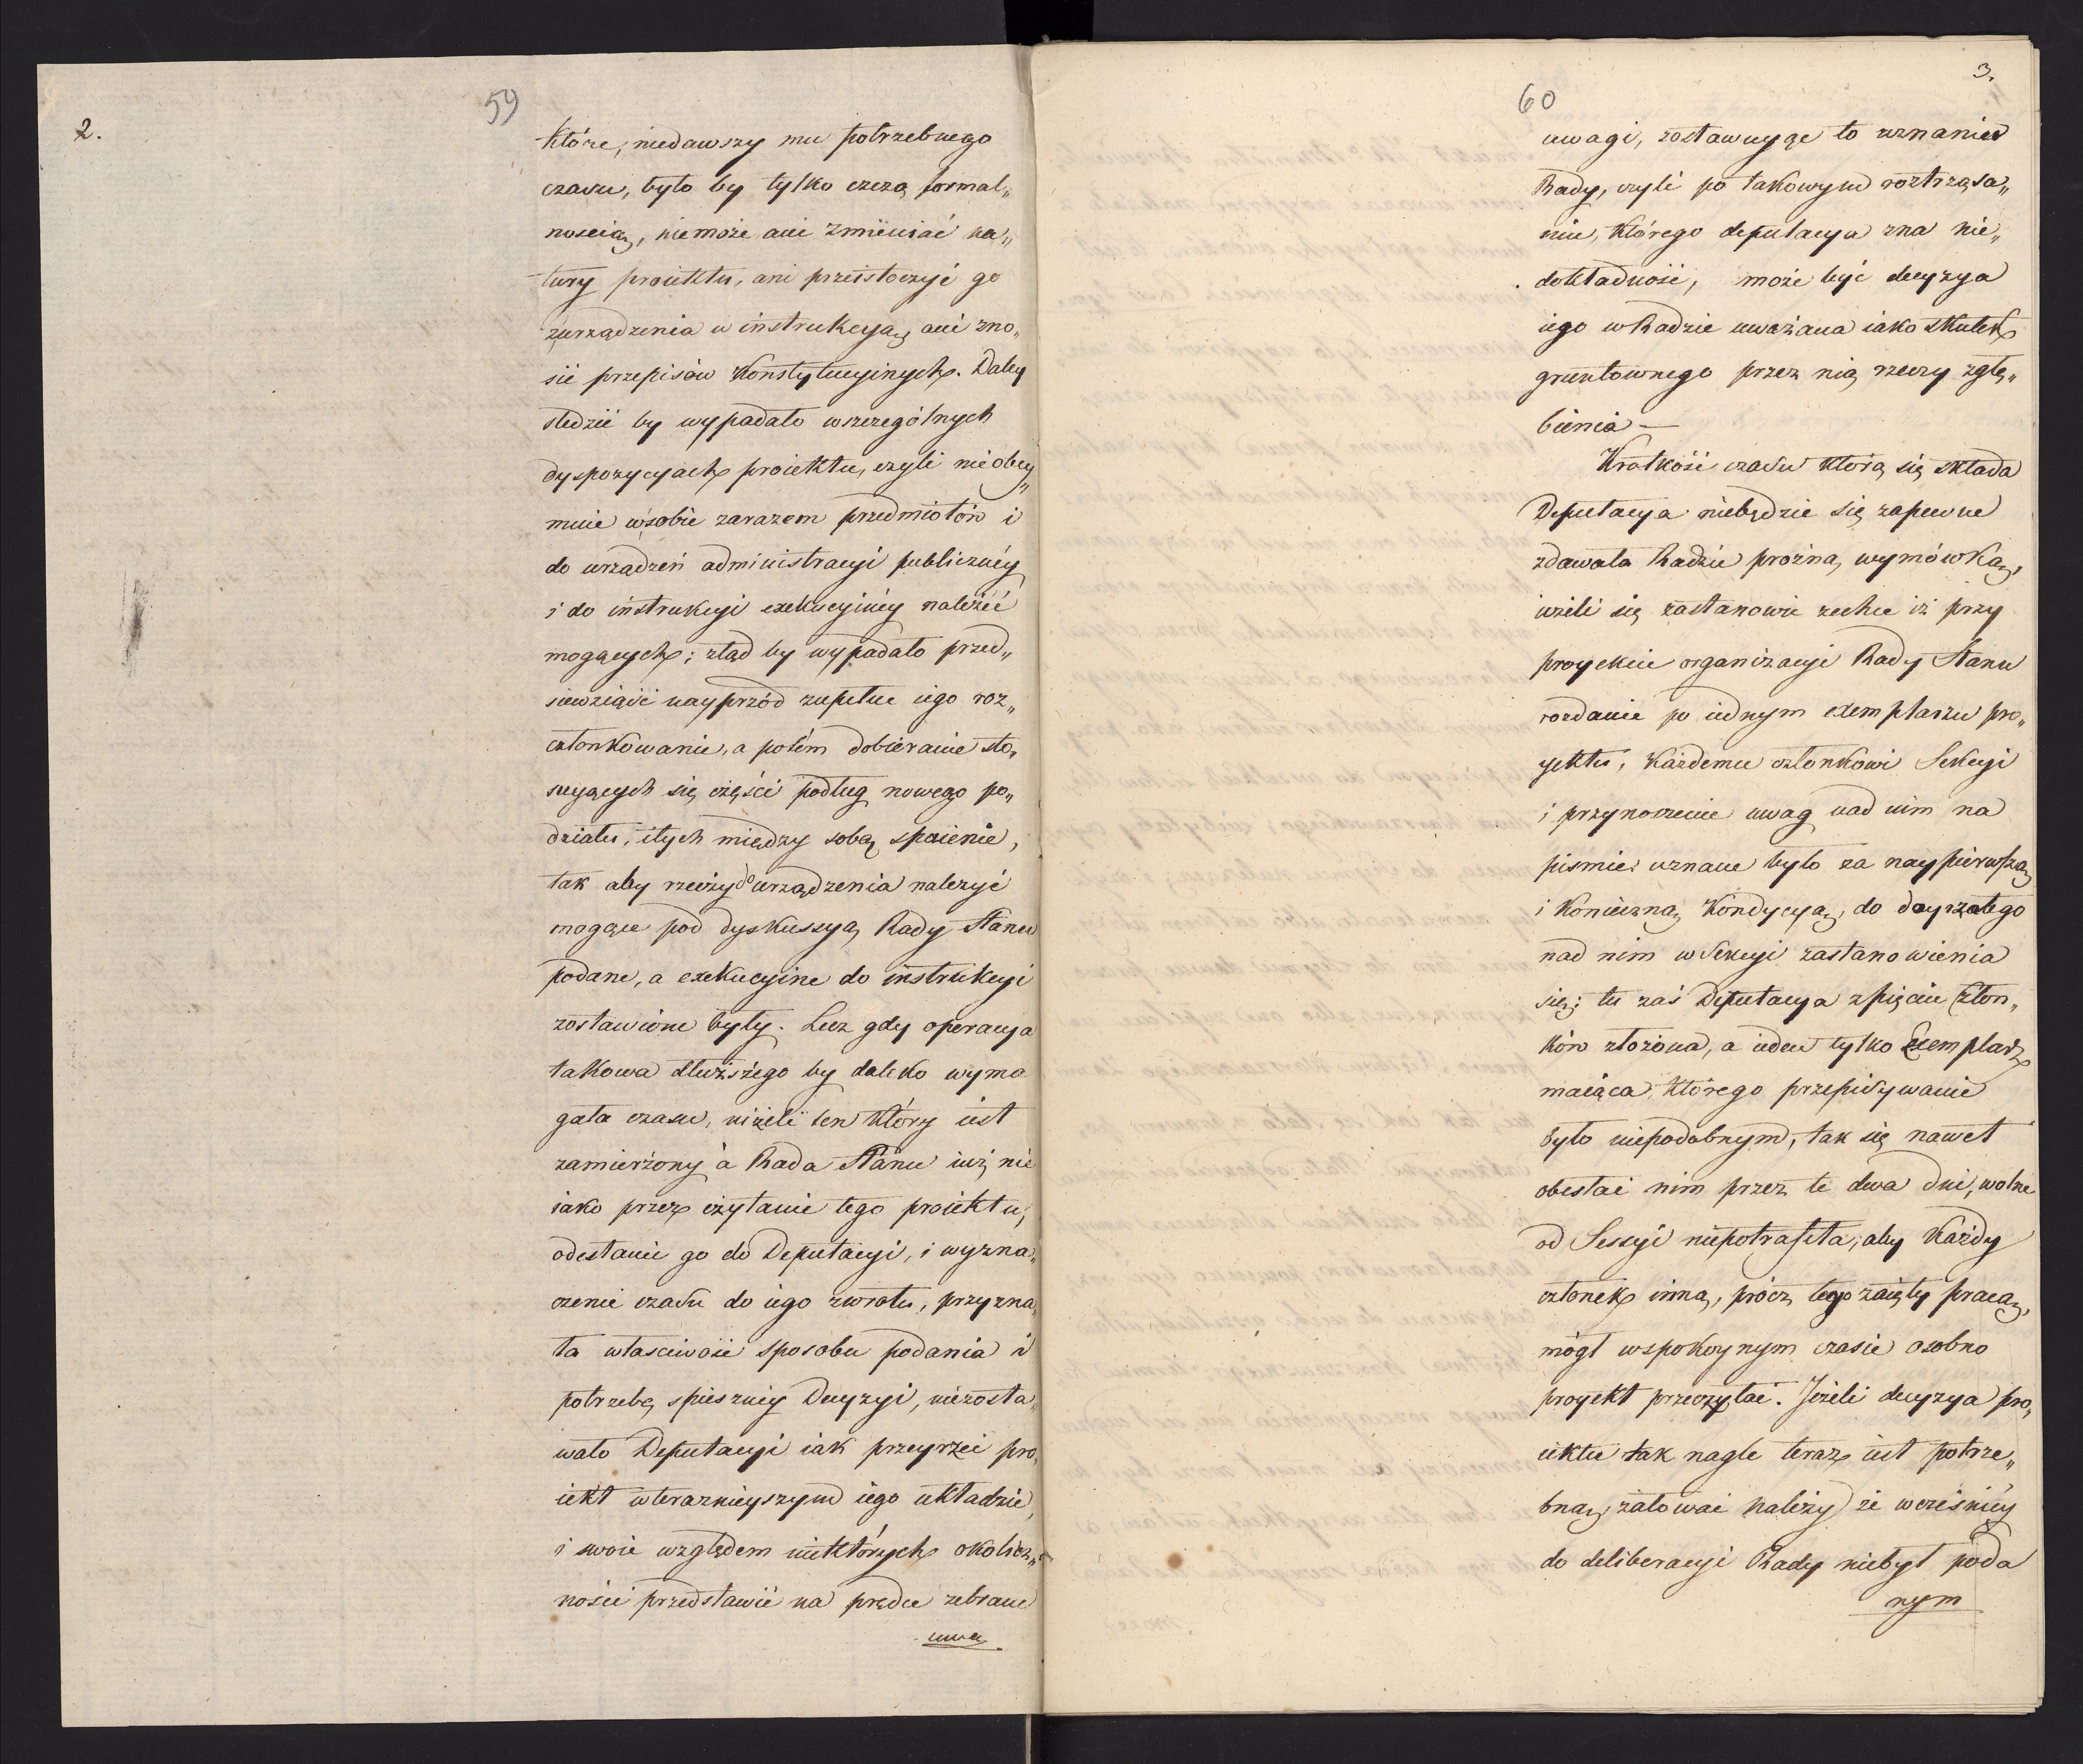 2.
59
które, niedawszy mu potrzebnego
czasu, było by tylko czczą formal„
nością, niemoże ani zmieniać na„
tury proiektu, ani przeistoczyć go
z urządzenia w instrukcyą, ani zno„
sić przepisów Konstytucyinych. Daley
śledzić by wypadało w szczególnych
dyspozycyach proiektu, czyli nie obey„
muie w sobie zarazem przedmiotów i
do urządzeń administracyi publiczney
i do instrukcyi exekucyiney należeć
mogących; ztąd by wypadało przed„
siewziąść nayprzód zupełne iego roz„
członkowanie, a potém dobieranie sto„
suyących się części podług nowego po„
działu, i tych między sobą spoienie,
tak aby rzeczy do urządzenia należyć
mogące pod dyskussyą Rady Stanu
podane, a exekucyine do instrukcyi
zostawione były. Lecz gdy operacya
takowa dłuższego by daleko wyma
gała czasu, niżeli ten który iest
zamierzony a Rada Stanu iuż nie
iako przez czytanie tego proiektu,
odesłanie go do Deputacyi, i wyzna„
czenie czasu do iego zwrotu, przyzna„
ła właściwość sposobu podania i
potrzebę spieszney Decyzyi, niezosta„
wało Deputacyi iak przeyrzeć pro„
iekt w teraznieyszym iego układzie,
i swoie względem niektórych okolicz„
ności przedstawić na prędce zebrane
uwa
3.
60
uwagi, zostawuyąc to uznaniu
Rady, czyli po takowym roztrząsa„
niu, którego deputacya zna nie„
dokładność, może być decyzya
iego w Radzie uważana iako skutek
gruntownego przez nią rzeczy zgłę„
bienia —
Krótkość czasu którą się składa
Deputacya niebędzie się zapewne
zdawała Radzie próżną wymówką,
ieżeli się zastanowić zechce iż przy
proyekcie organizacyi Rady Stanu
rozdanie po iednym exemplarzu pro„
yektu, każdemu członkowi Sekcyi
i przynoszenie uwag nad nim na
pismie: uznane było za naypierwszą
i konieczną kondycyą, do doyrzałego
nad nim w Sekcyi zastanowienia
się; tu zaś Deputacya z pięciu Człon„
ków złożona, a ieden tylko Exemplarz
maiąca, którego przepisywanie
było niepodobnym, tak się nawet
obesłać nim przez te dwa dni, wolne
od Sessyi niepotrafiła, aby każdy
członek inną, prócz tego zaięty pracą,
mógł w spokoynym czasie osobno
proyekt przeczytać. Jeżeli decyzya pro„
iektu tak nagle teraz iest potrze„
bną, żałować należy że wcześniey
do deliberacyi Rady niebył poda
nym